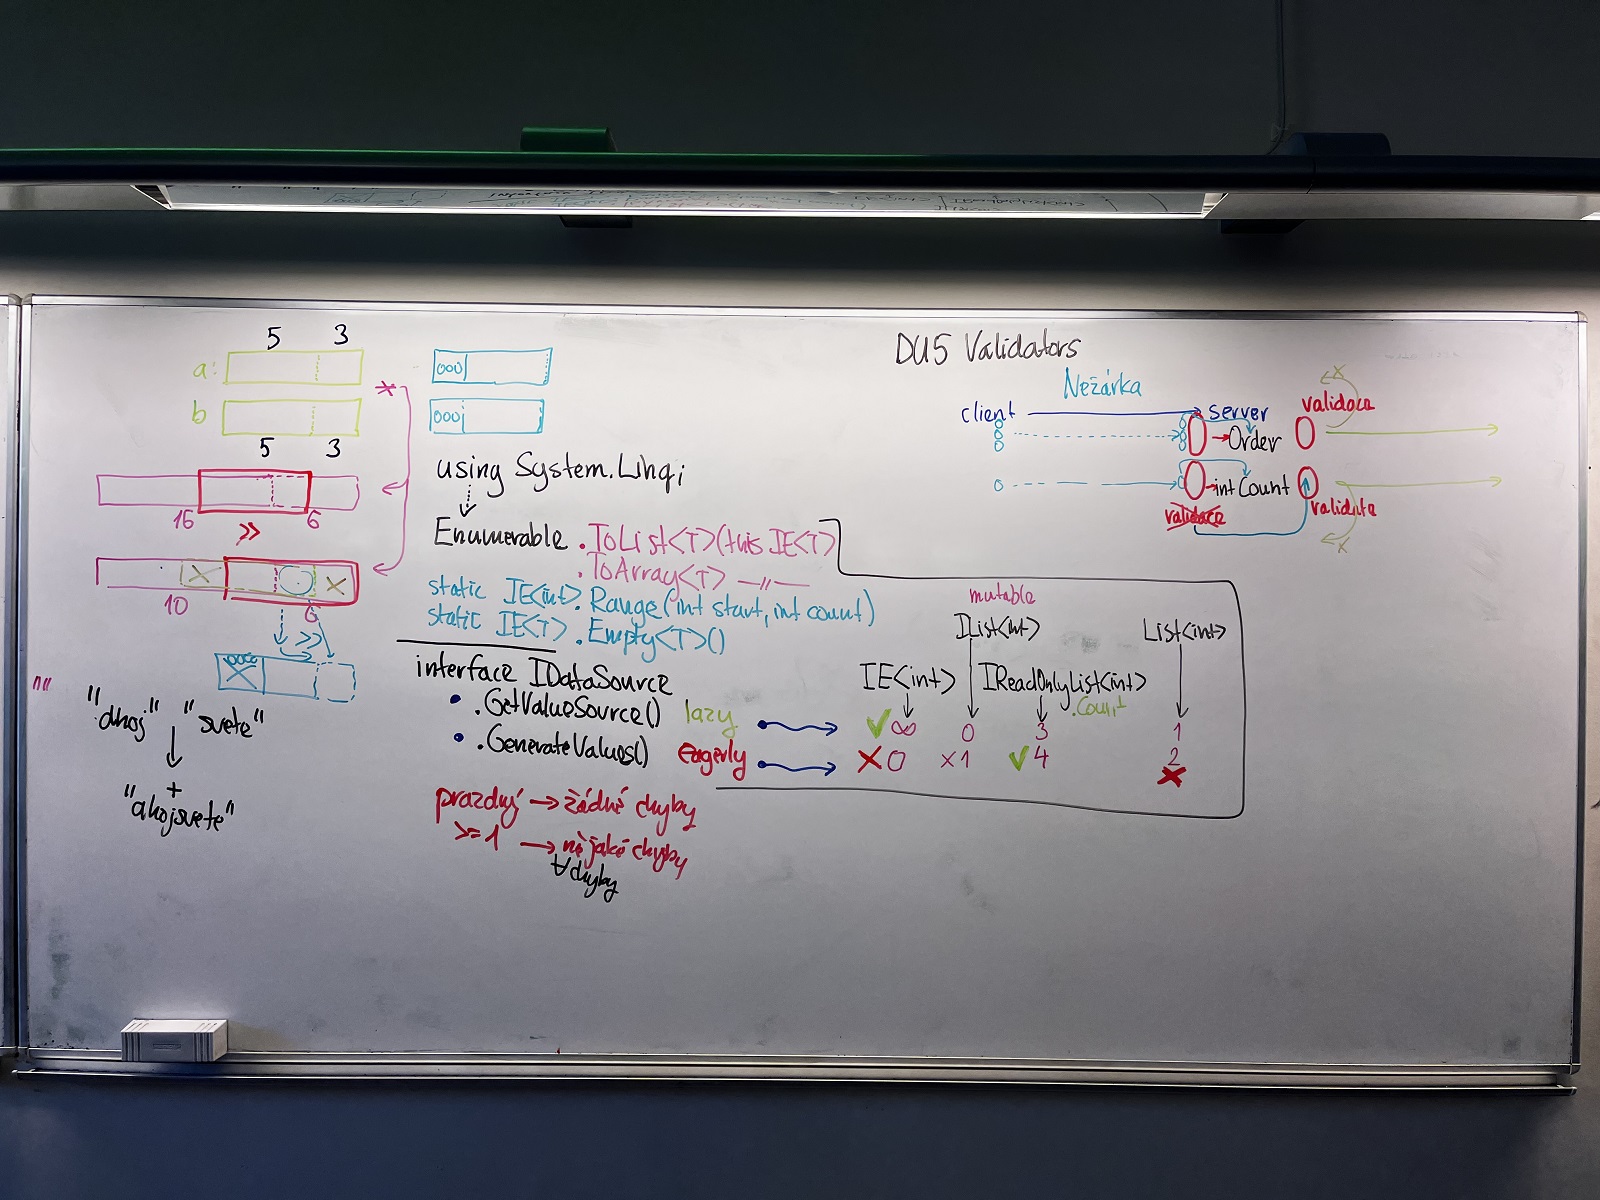 5 3
a:
b
5 3
*
16 6
>>
10 6
>>
""
"ahoj" "svete"
+
"ahojsvete"
000
000
using System.Linq;
Enumerable .ToList<T>(this IE<T>)
.ToArray<T> —〃—
static IE<int>.Range(int start, int count)
static IE<T>.Empty<T>()
interface IDataSource
• .GetValueSource() lazy
• .GenerateValues() Eagerly
prazdný → žádné chyby
>=1 → nějaké chyby
∀chyby
mutable
IList<int> List<int>
IE<int> IReadOnlyList<int>
.Count
✓∞ 0 3 1
×0 ×1 ✓4 2
×
DU5 Validators
Nežárka
client server validace
→Order
→int Count
validace validate
x
x